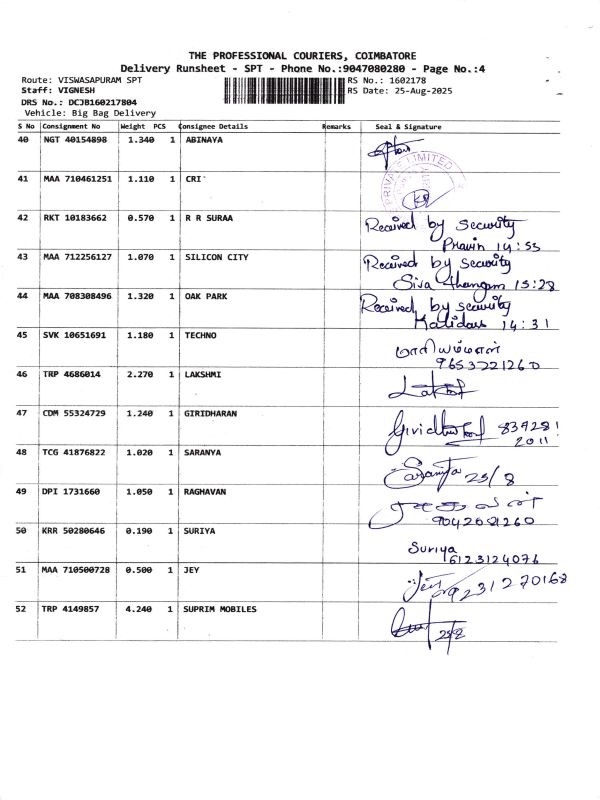 THE PROFESSIONAL COURIERS, COIMBATORE
Delivery Runsheet - SPT - Phone No.:9047080280 - Page No.:4
Route: VISWASAPURAM SPT RS No.: 1602178
Staff: VIGNESH RS Date: 25-Aug-2025
DRS No.: DCJB160217804
Vehicle: Big Bag Delivery
S No Consignment No Weight PCS Consignee Details Remarks Seal & Signature
40 NGT 40154898 1.340 1 ABINAYA
41 MAA 710461251 1.110 1 CRI PRIVATE LIMITED
42 RKT 10183662 0.570 1 R R SURAA Received by security
Pravin 14:53
43 MAA 712256127 1.070 1 SILICON CITY Received by security
Siva thangam 15:28
44 MAA 708308496 1.320 1 OAK PARK Received by security
Kalidass 14:31
45 SVK 10651691 1.180 1 TECHNO மாரியம்மாள்
9653721260
46 TRP 4686014 2.270 1 LAKSHMI
47 CDM 55324729 1.240 1 GIRIDHARAN 839281
2011
48 TCG 41876822 1.020 1 SARANYA Saranya 25/8
49 DPI 1731660 1.050 1 RAGHAVAN
50 KRR 50280646 0.190 1 SURIYA Suriya
6123124076
51 MAA 710500728 0.500 1 JEY
52 TRP 4149857 4.240 1 SUPRIM MOBILES